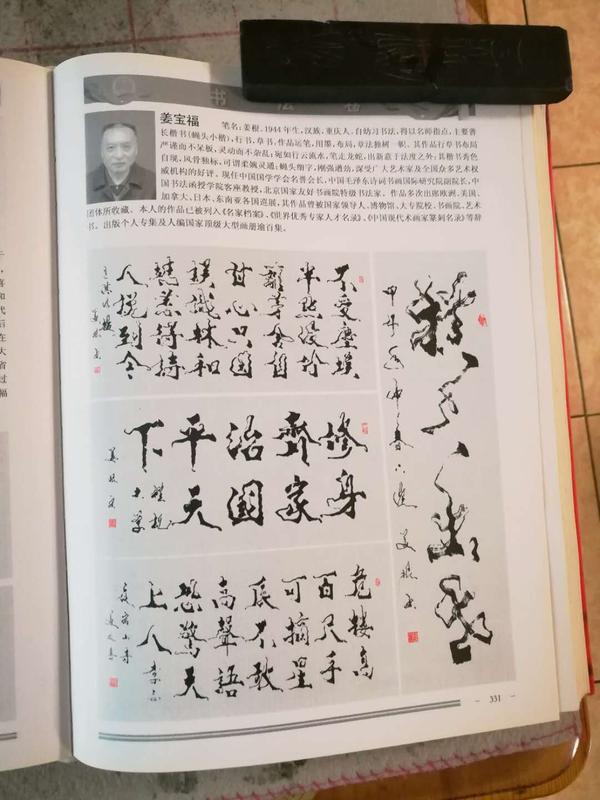 书法
姜宝福
笔名:姜根,1944年生,汉族,重庆人。自幼习书法,得以名师指点,主要善
长楷书(蝇头小楷),行书,草书。作品运笔,用墨,布局,章法独树一帜。其作品行草书布局
严谨而不呆板,灵动而不杂乱;宛如行云流水,笔走龙蛇,出新意于法度之外;其楷书秀色
自现,风骨独标,可谓柔婉灵通;蝇头细字,刚强遒劲,深受广大艺术家及全国众多艺术权
威机构的好评。现任中国国学学会名誉会长,中国毛泽东诗词书画国际研究院副院长,中
国书法函授学院客座教授,北京国家友好书画院特级书法家。作品多次出展欧洲、美国、
加拿大、日本、东南亚各国巡展,其作品曾被国家领导人、博物馆、大专院校、书画院、艺术
团体所收藏。本人的作品已被列入《名家档案》、《世界优秀专家人才名录》、《中国现代艺术家篆刻名录》等辞
书。出版个人专集及入编国家顶级大型画册逾百集。
不受塵埃
半點侵竹
籬茅舍自
甘心只因
誤識林和
靖惹得詩
人說到今
修身
齊家
治國
平天
下
禮記
大學
危樓高
百尺手
可摘星
辰不敢
高聲語
恐驚天
上人
李白
夜宿山寺
- 331 -